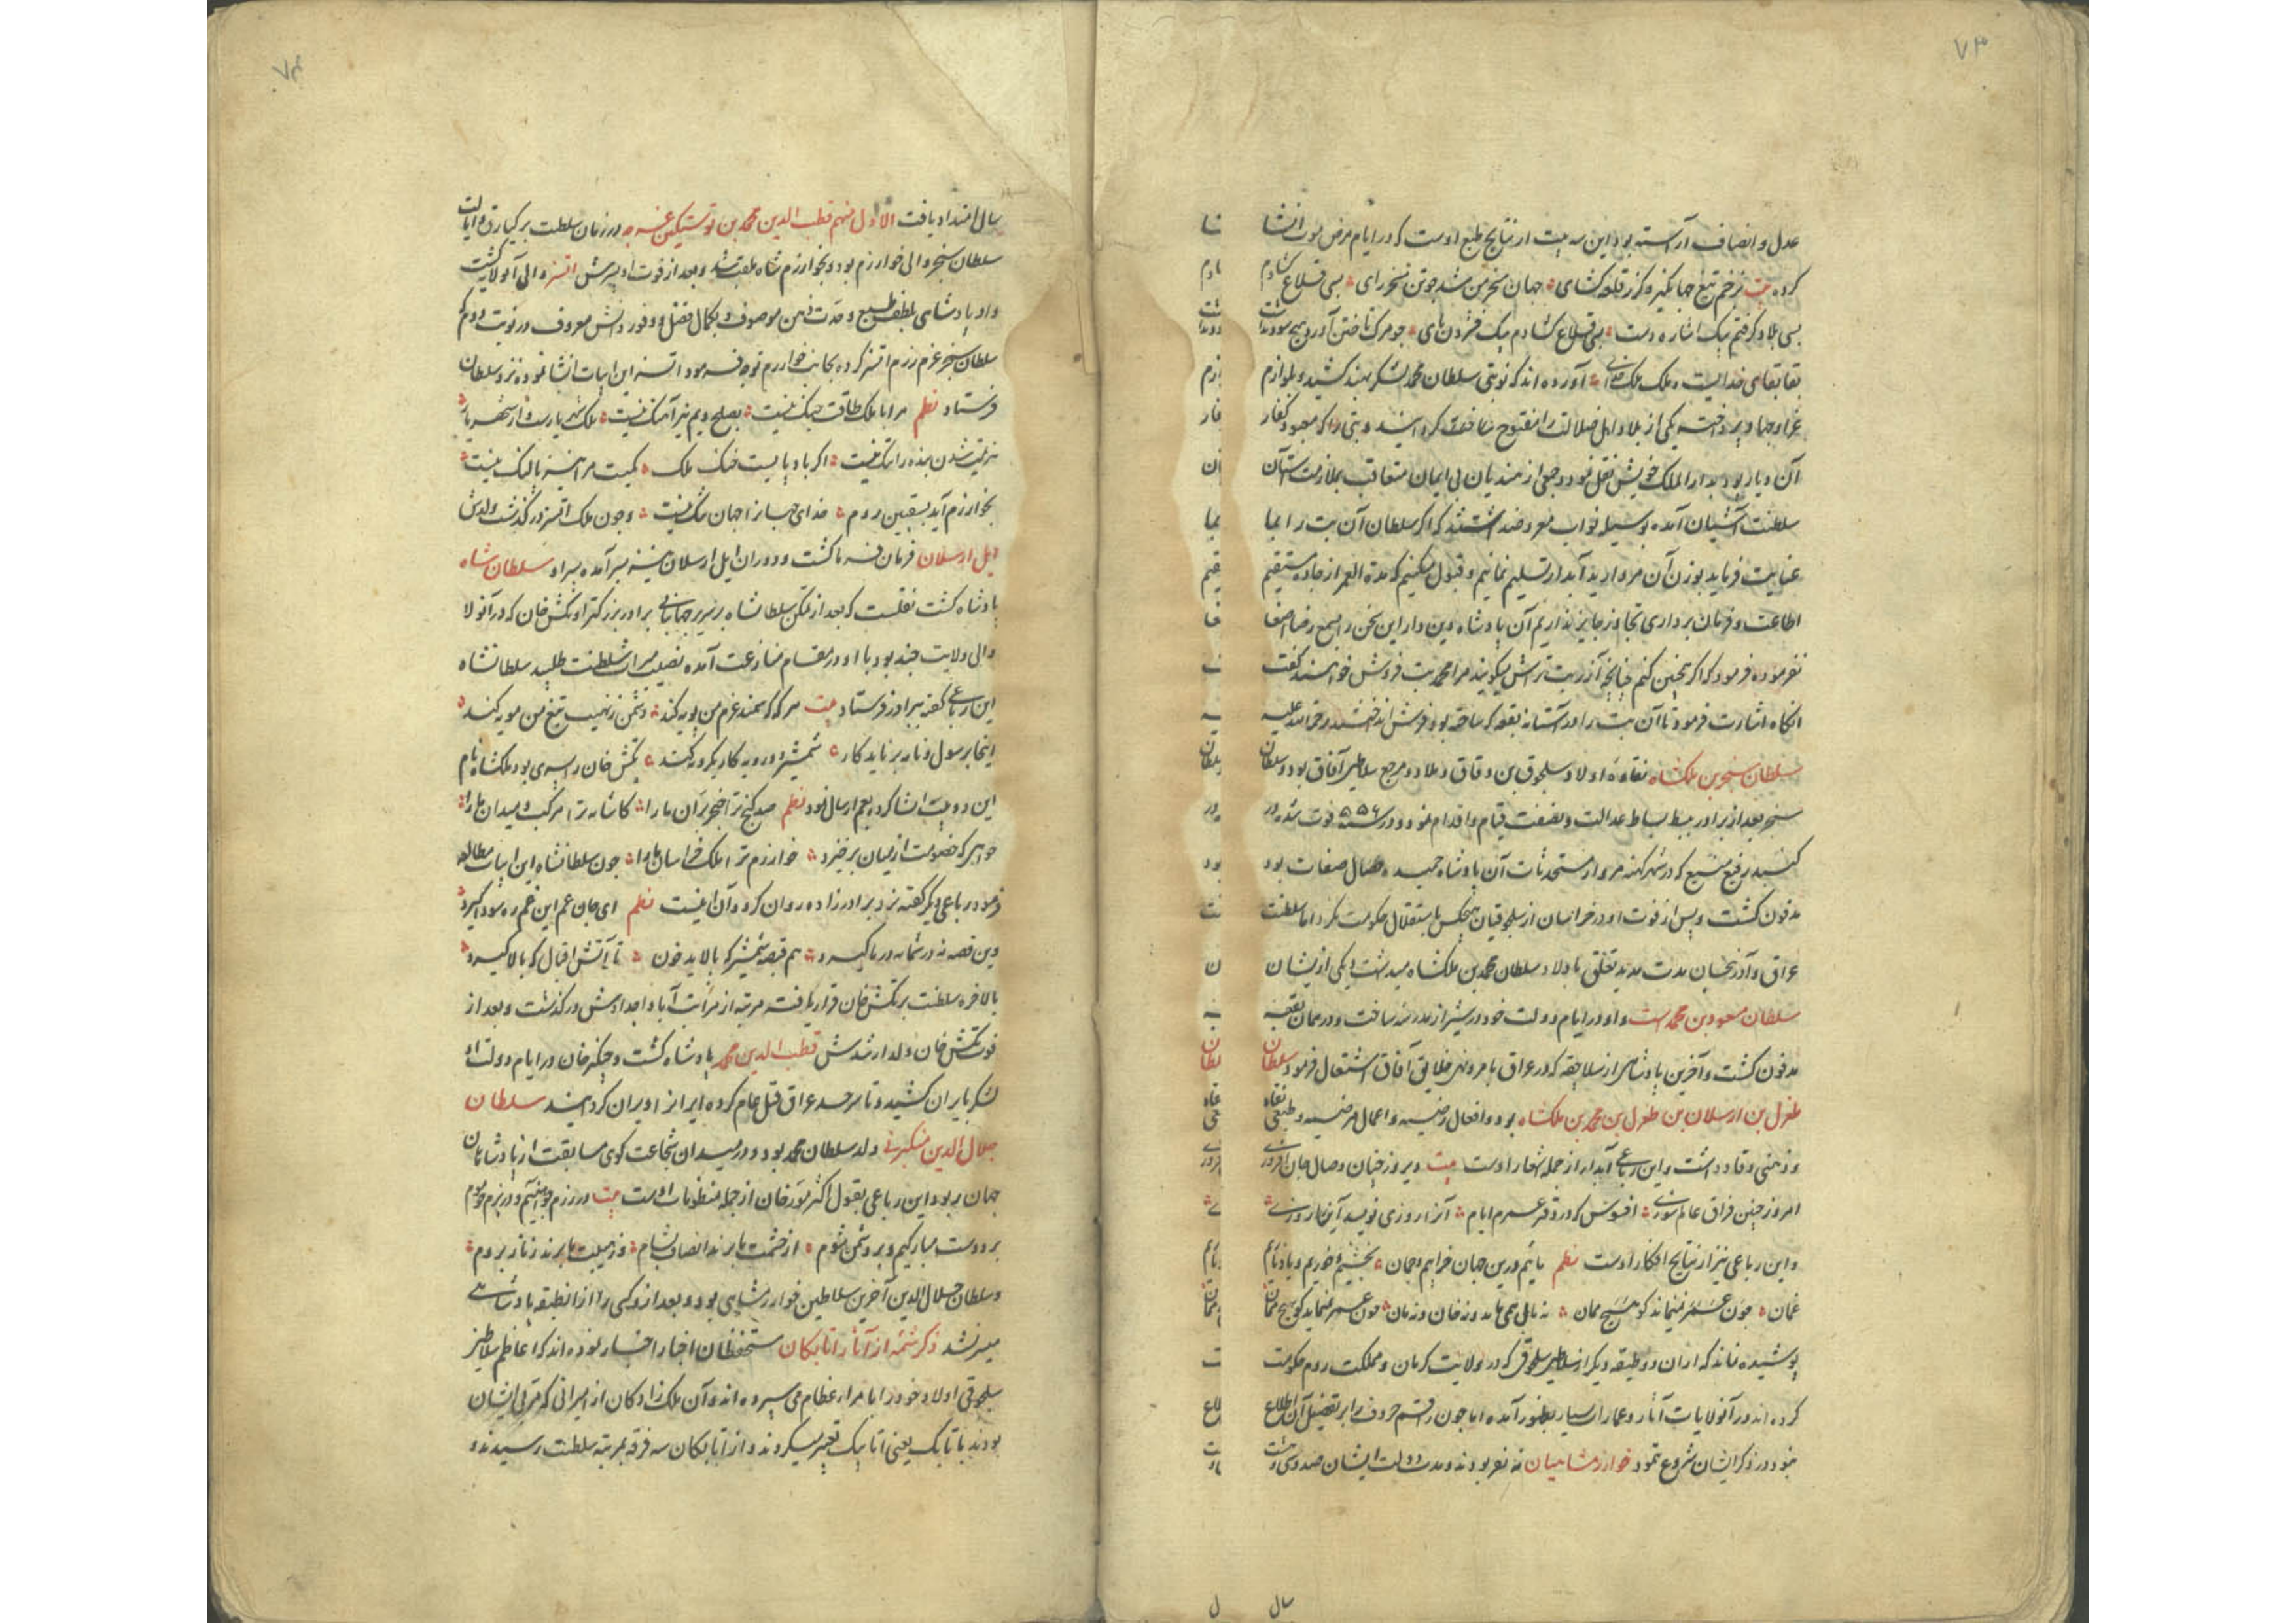 ۷۳
عدل و انصاف آراسته بود این سه بیت از نتایج طبع اوست که در ایام مرض موت انشا
کرده بیت ز زخم تیغ جهانگیر و گرز قلعه کشای جهان مسخر من شد چو تن مسخر رای بسی قلاع کشادم
بسی بلاد گرفتم بیک اشاره دست بسی قلاع کشادم بیک فشردن پای چو مرک تاختن آورد هیچ سود نداشت
بقا بقای خدایست و ملک ملک خدای آورده اند که نوبتی سلطان محمد لشکر بهند کشید و بلوازم
غزا و جهاد پرداخته یکی از بلاد اهل ضلالت را مفتوح ساخت و بتی را که معبود کفار
آن دیار بود بدار الملک خویش نقل نمود و جمعی از هندیان بی ایمان متعاقب بملازمت آستان
سلطنت آشیان آمده بوسیله نواب معروض داشتند که اگر سلطان آن بت را بما
عنایت فرماید بوزن آن مروارید آبدار تسلیم نمائیم و قبول میکنیم که مدة العمر از جاده مستقیم
اطاعت و فرمان برداری تجاوز جایز نداریم آن پادشاه دین دار این سخن را بسمع رضا اصغا
نفرموده فرمود که اگر چنین کنم چنانچه آزر بت تراش میگویند مرا محمد بت فروش خواهند گفت
انگاه اشارت فرمود تا آن بت را در آستانه بقعه که ساخته بود فرش انداختند رحمة الله علیه
سلطان سنجر بن ملکشاه نقاوه اولاد سلجوق بن دقاق و ملاذ و مرجع سلاطین آفاق بود و سلطان
سنجر بعد از برادر ببسط بساط عدالت و نصفت قیام و اقدام نمود و در سنه ۵۵۶ فوت شده در
گنبد رفیع منیع که در شهر کهنه مرو از مستحدثات آن پادشاه حمیده خصال صفات بود
مدفون گشت و پس از فوت او در خراسان از سلجوقیان هیچکس باستقلال حکومت نکرد اما سلطنت
عراق و آذربیجان مدت مدید تعلق باولاد سلطان محمد بن ملکشاه میداشت و یکی از ایشان
سلطان مسعود بن محمد است و او در ایام دولت خود در شیراز مدرسه ساخت و در همان بقعه
مدفون گشت و آخرین پادشاهی از سلاجقه که در عراق بامر و نهی خلایق آفاق اشتغال فرمود سلطان
طغرل بن ارسلان بن طغرل بن محمد بن ملکشاه بود و افعال رضیه و اعمال مرضیه و طبعی نقاد
و ذهنی وقاد داشت و این رباعی آبدار از جمله اشعار اوست بیت دیروز چنان وصال جان افروزی
امروز چنین فراق عالم سوزی افسوس که در دفتر عمرم ایام آنرا روزی نویسد اینرا روزی
و این رباعی نیز از نتایج افکار اوست نظم مائیم درین جهان
پوشیده نماند که دو طبقه دیگر از سلاطین سلجوقی که در ولایت کرمان و مملکت روم حکومت
کرده اند در آن ولایات آثار و عمارات بسیار بظهور آمده اما چون راقم حروف را بر تفصیل آن اطلاع
نبود در ذکر ایشان شروع ننمود خوارزمشاهیان نه نفر بودند و مدت دولت ایشان صد و سی و هشت
سال
۷۴
سال امتداد یافت الاول منهم قطب الدین محمد بن نوشتکین غرجه در زمان سلطنت برکیارق و ایالت
سلطان سنجر والی خوارزم بود و بخوارزم شاه ملقب شد و بعد از فوت او پسرش اتسز والی آن ولایت گشت
و او پادشاهی بلطف طبع و حدت ذهن موصوف و بکمال فضل و وفور دانش معروف در نوبت دوم که
سلطان سنجر عزم رزم اتسز کرده بجانب خوارزم توجه فرمود اتسز این ابیات انشا نموده نزد سلطان
فرستاد نظم مرا با ملک طاقت جنک نیست بصلح ویم نیز آهنک نیست ملک شهریارست و از شهریار
هزیمت شدن بنده را ننک نیست اگر باد پایست خنک ملک کمیت مرا نیز پا لنک نیست
بخوارزم آید بسقسین روم خدای جهانرا جهان تنک نیست و چون ملک اتسز درگذشت ولدش
ایل ارسلان فرمان فرما گشت و دوران ایل ارسلان نیز بسر آمده پسر او سلطان شاه
پادشاه گشت نقلست که بعد از تمکن سلطانشاه بر سریر جهانبانی برادر بزرگتر او تکش خان که در آن ولا
والی ولایت جند بود با او در مقام منازعت آمده نصیب میراث سلطنت طلبید سلطانشاه
این رباعی گفته ببرادر فرستاد بیت هر که که سمند عزم من پویه کند دشمن ز نهیب تیغ من مویه کند
اینجا برسول و نامه برناید کار شمشیر دو رویه کار یکرویه کند تکش خان را پسری بود ملکشاه نام
این دو بیت انشا کرده بعم ارسال نمود نظم صد گنج ترا خنجر بران ما را کاشانه ترا مرکب و میدان ما را
خواهی که خصومت از میان برخیزد خوارزم ترا ملک خراسان ما را چون سلطانشاه این ابیات مطالعه
فرمود رباعی دیگر گفته نزد برادر زاده روان کرد و آن اینست نظم ای جان عم این غم ره سودا گیرد
وین قصه نه در شما نه در ما گیرد هم قبضه شمشیر که پالاید خون تا آتش اقبال که بالا گیرد
بالاخره سلطنت بر تکش خان قرار یافت مرتبه از مراتب آبا و اجدادش درگذشت و بعد از
فوت تکش خان ولد ارشدش قطب الدین محمد پادشاه گشت و چنگیز خان در ایام دولت او
لشکر بایران کشید و تا سرحد عراق قتل عام کرده ایرانرا ویران گردانید سلطان
جلال الدین منکبرنی ولد سلطان محمد بود و در میدان شجاعت گوی مسابقت از پادشاهان
جهان ربود این رباعی بقول اکثر مورخان از جمله منظومات اوست بیت در رزم چو آهنیم و در بزم چو موم
بر دوست مبارکیم و بر دشمن شوم از حشمت ما برند انصاف بشام وز هیبت ما برند زنار بروم
و سلطان جلال الدین آخرین سلاطین خوارزمشاهی بود و بعد ازو کسی را از آن طبقه پادشاهی
میسر نشد ذکر شمه از آثار اتابکان مستحفظان اخبار اخبار نموده اند که اعاظم سلاطین
سلجوقی اولاد خود را بامراء عظام می سپرده اند و آن ملک زادکان از امیرانی که مربی ایشان
بودند باتابک یعنی اتا بیک تعبیر میکردند و از اتابکان سه فرقه بمرتبه سلطنت رسیدند و